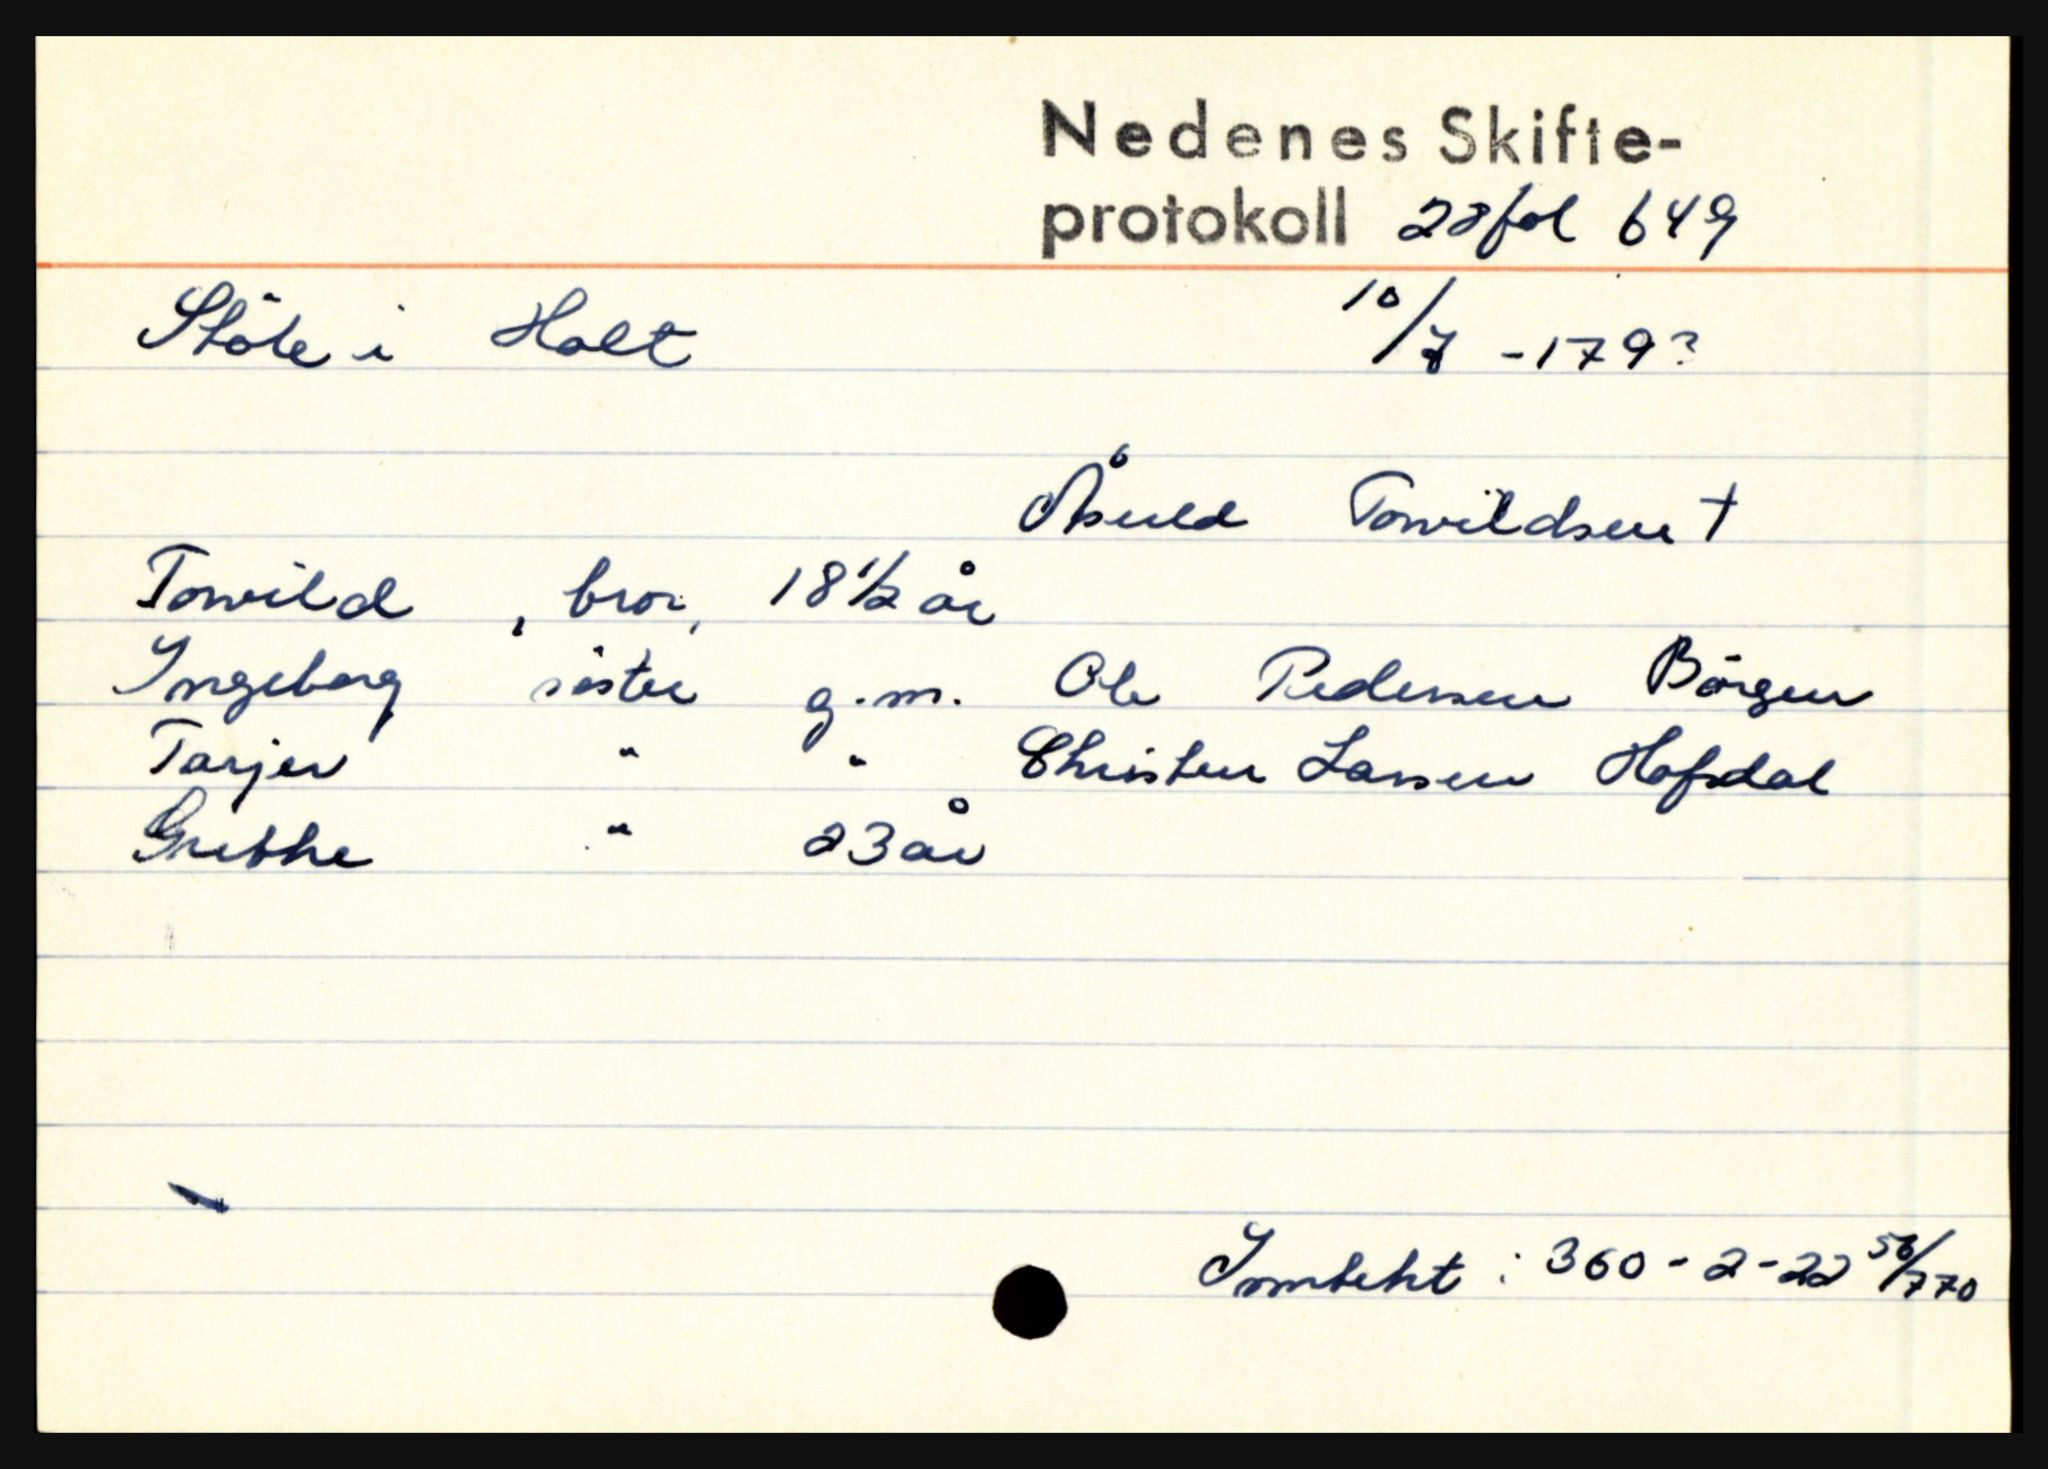 Nedenes Skifte-
protokoll 28 fol 649
Støle i Holt 10/7 - 179?
Åsuld Torvildsen †
Torvild , bror, 18 1/2 år
Ingeborg søster g.m. Ole Pedersen Børgen
Tarjer " " Christen Larsen Hofsdal
Grethe " 23 år
Inntekt : 360 - 2 - 22 56/770